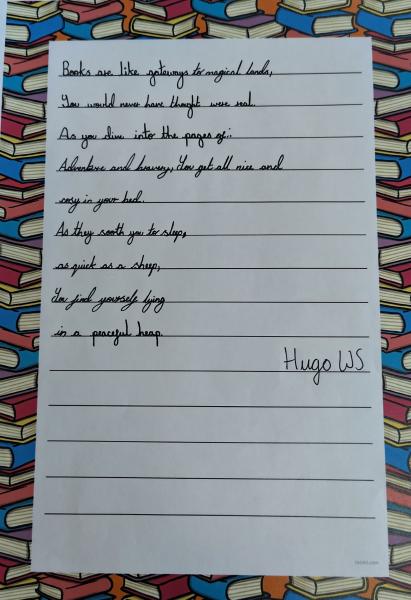 Books are like gateways to magical lands,
You would never have thought were real.
As you dive into the pages of:
Adventure and bravery, You get all nice and
cosy in your bed.
As they sooth you to sleep,
as quick as a sheep,
You find yourself lying
in a peaceful heap.
Hugo WS